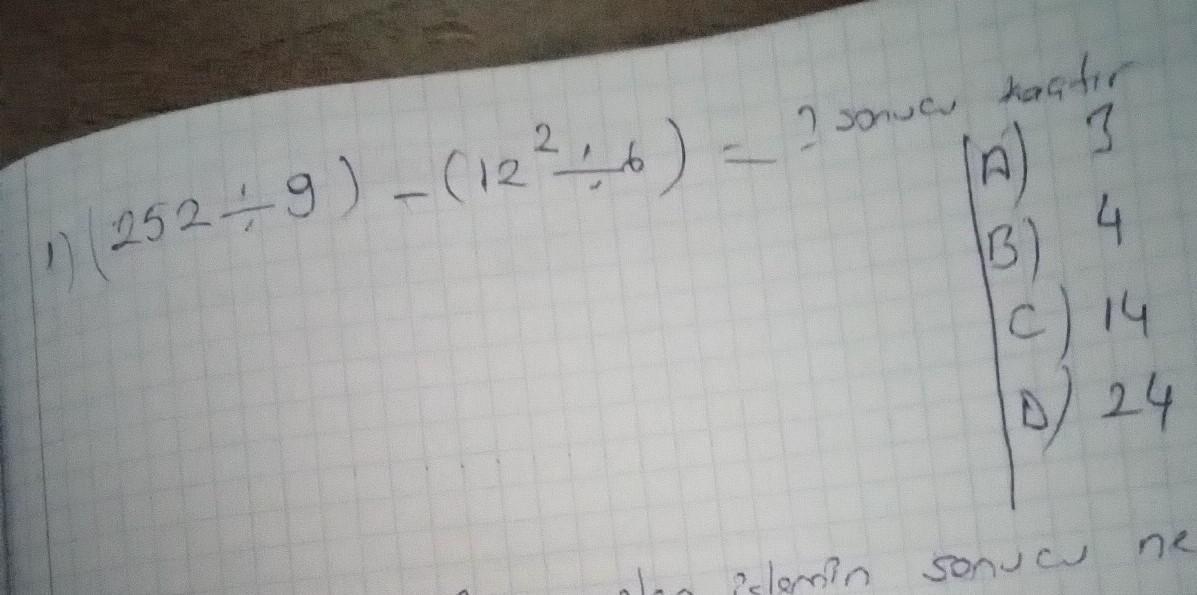 1) (252÷9) - (12²÷6) = ? sonucu kaçtır
A) 3
B) 4
C) 14
D) 24
işlemin sonucu ne